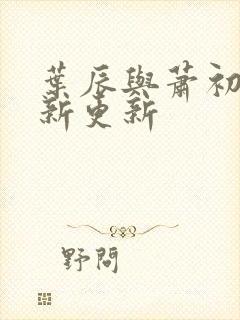 葉辰與蕭初
新更新
野問